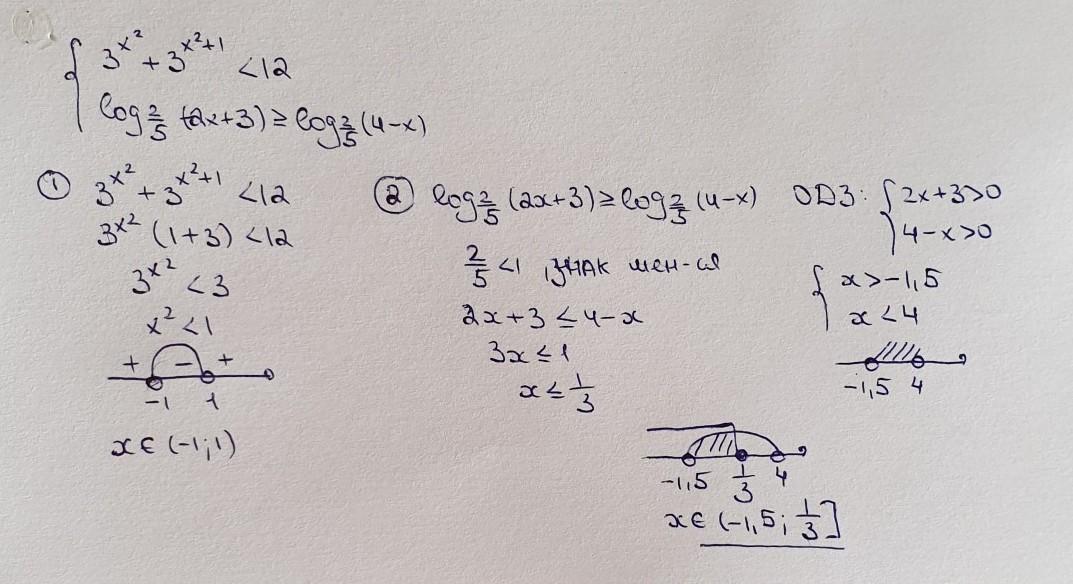 { 3^{x^2} + 3^{x^2+1} < 12
log_{2/5} (2x+3) ≥ log_{2/5} (4-x)
① 3^{x^2} + 3^{x^2+1} < 12
3^{x^2} (1+3) < 12
3^{x^2} < 3
x^2 < 1
+ - +
-1 1
x ∈ (-1; 1)
② log_{2/5} (2x+3) ≥ log_{2/5} (4-x)
2/5 < 1, знак мен-ся
2x+3 ≤ 4-x
3x ≤ 1
x ≤ 1/3
ОДЗ: { 2x+3>0
4-x>0
{ x > -1,5
x < 4
-1,5 4
-1,5 1/3 4
x ∈ (-1,5; 1/3]